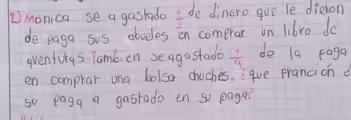 2) Monica se a gastado 1/3 de dinero que le dieron
de paga sus abuelos en comprar un libro de
aventuras. Tambien se agastado 1/4 de la paga
en comprar una bolsa chuches. ¿que francion d
su paga a gastado en su paga?